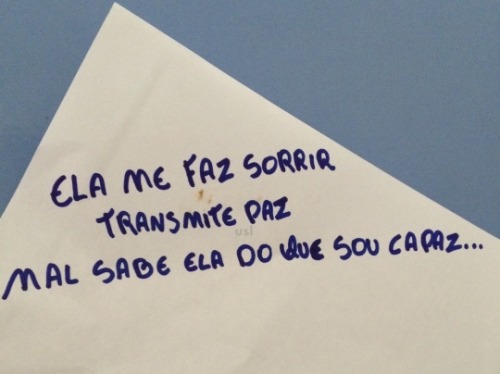 ELA ME FAZ SORRIR
TRANSMITE PAZ
usl
MAL SABE ELA DO QUE SOU CAPAZ...